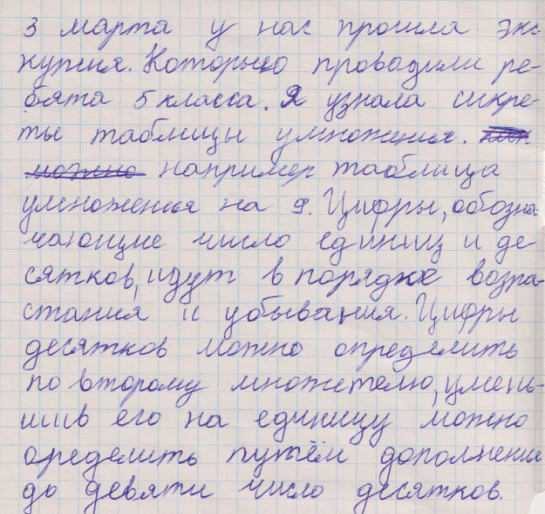 3 марта у нас прошла экс
курсия. Которыю проводили ре-
бята 5 класса. Я узнала сикре-
ты таблицы умножения.
можно например таблица
умножения на 9. Цифры, обозна
чающие число единиц и де-
сятков, идут в порядке возра-
стания и убывания. Цифры
десятков можно определить
по второму множетелю, умень-
шив его на единицу можно
оределить путём дополнения
до девяти число десятков.